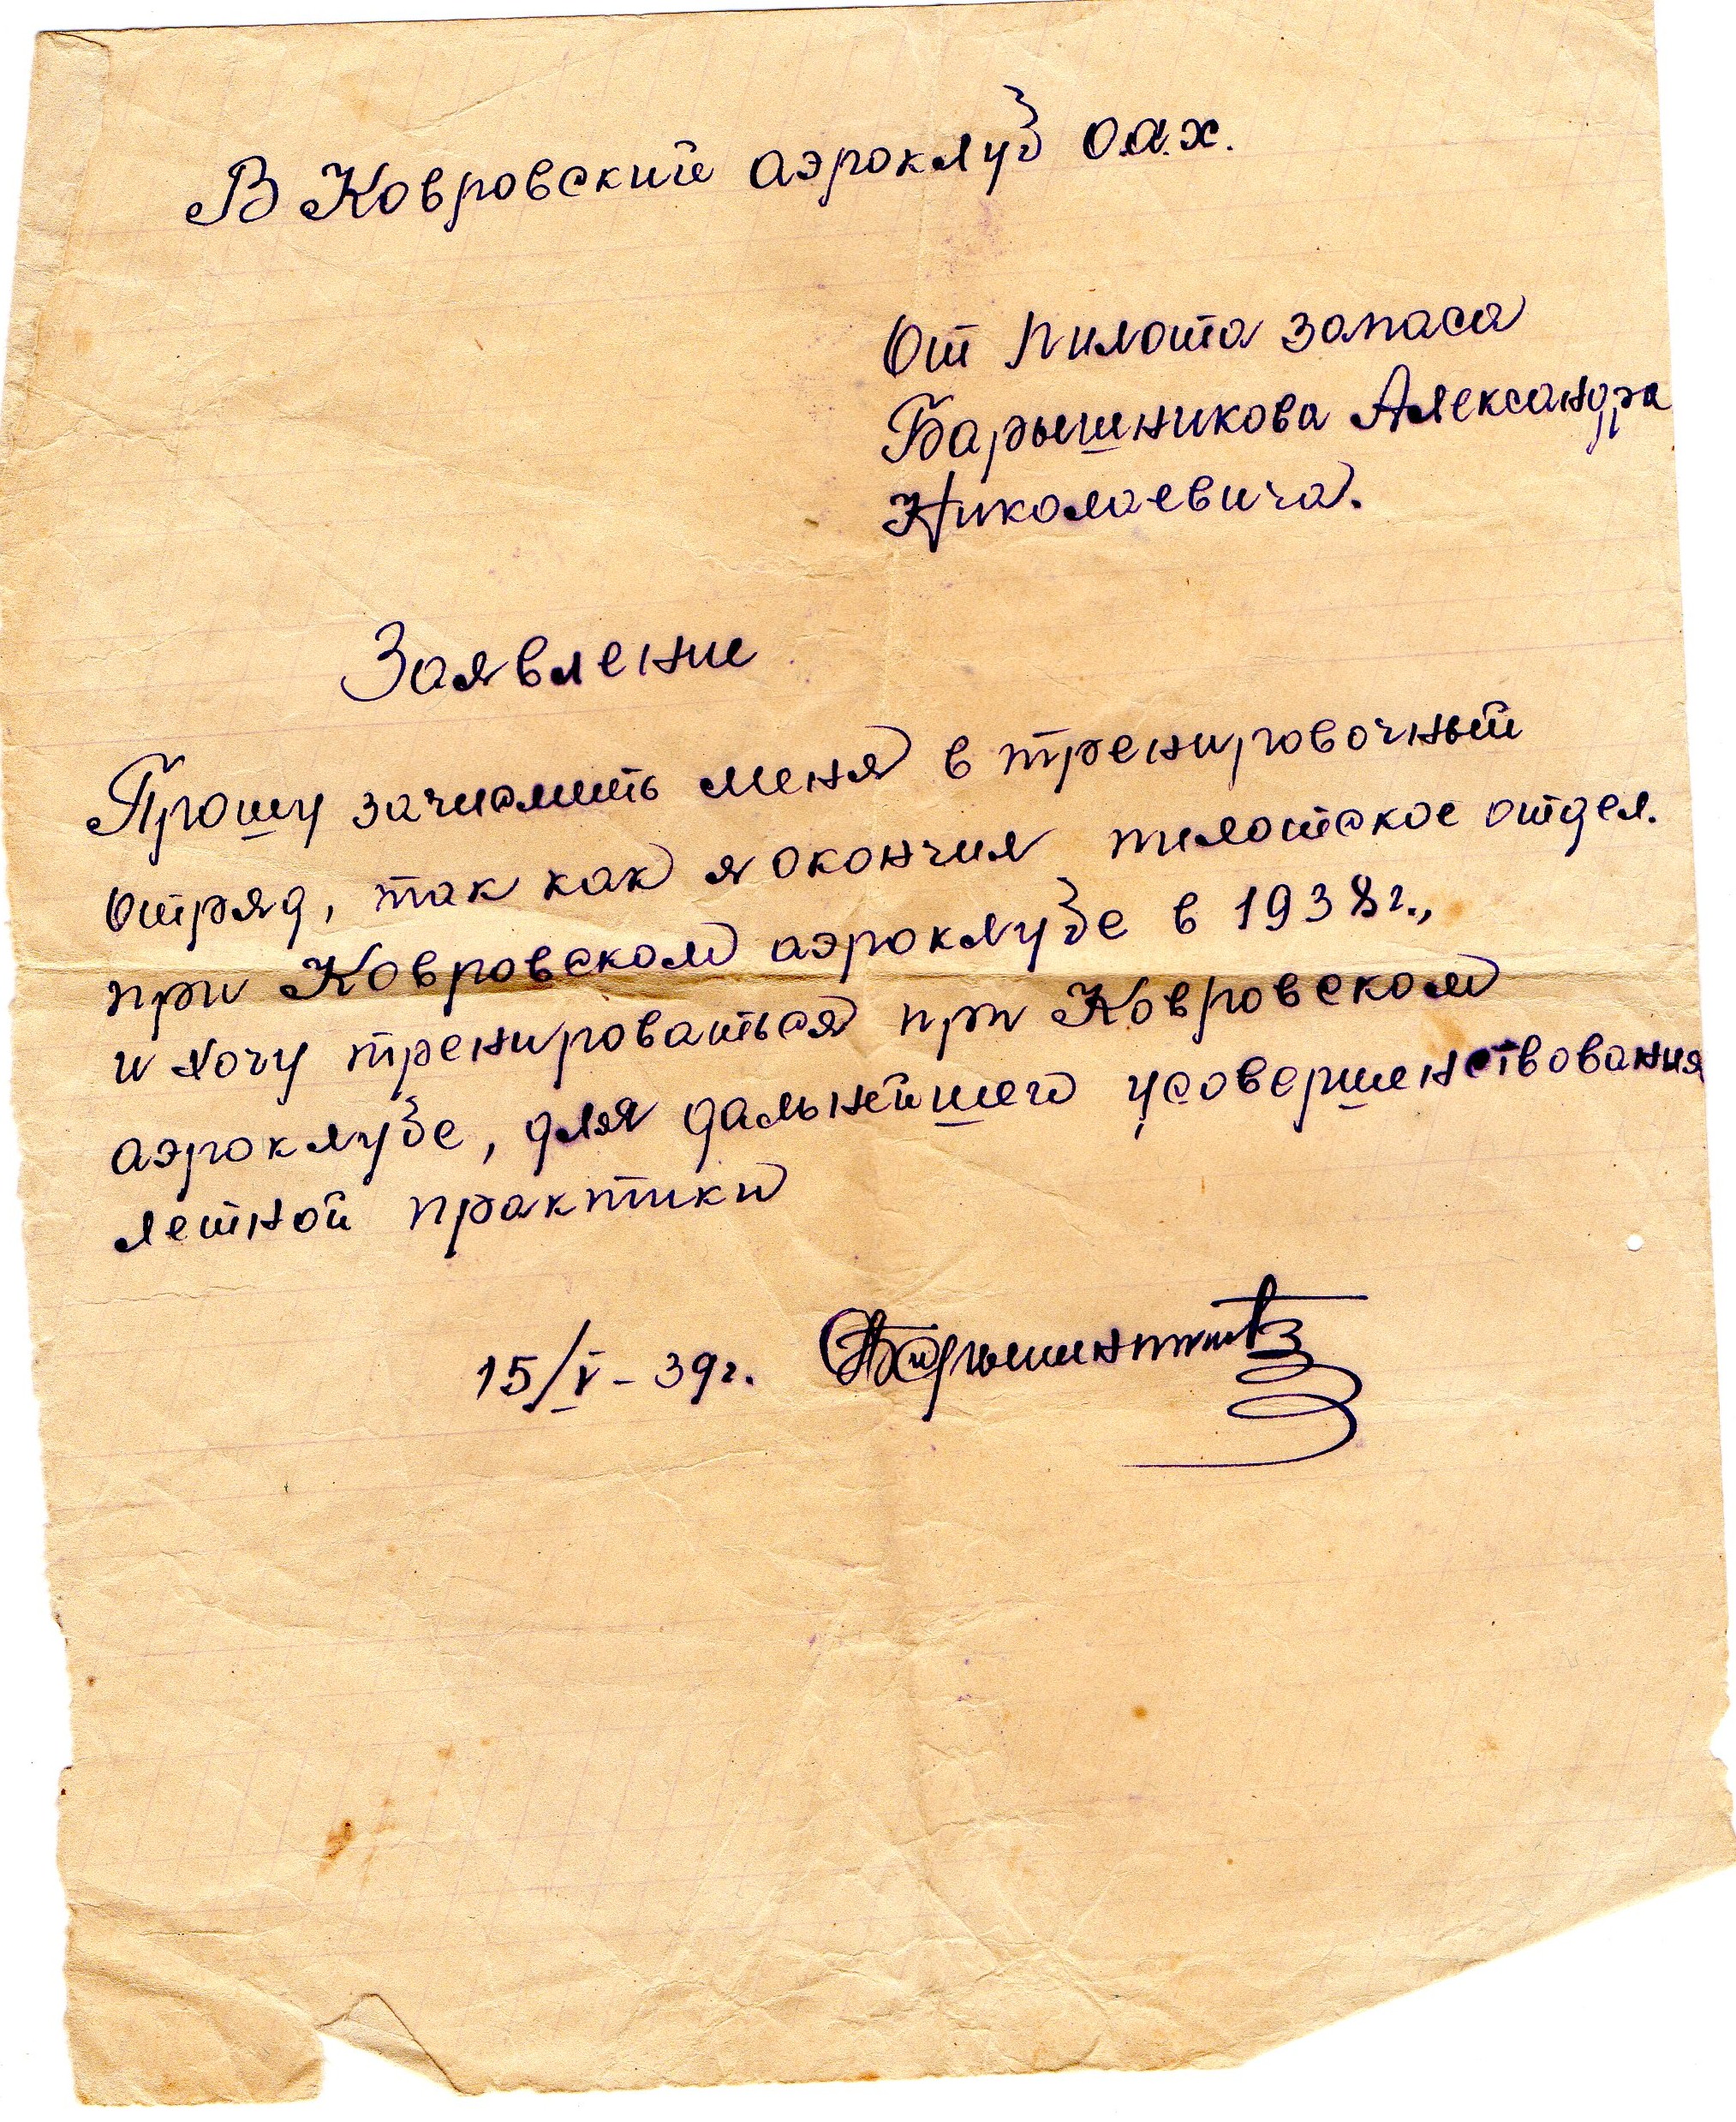 В Ковровский аэроклуб О.А.Х.
От пилота запаса
Барышникова Александра
Николаевича.
Заявление
Прошу зачислить меня в тренировочный
отряд, так как я окончил пилотское отдел.
при Ковровском аэроклубе в 1938г.,
и хочу тренироваться при Ковровском
аэроклубе, для дальнейшего усовершенствования
летной практики
15/V - 39г. Барышников